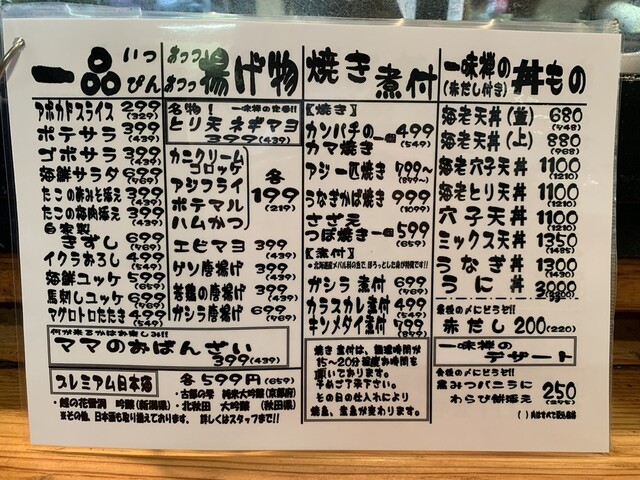 一品 いっぴん
アボカドスライス 299 (329)
ポテサラ 399 (439)
ゴボサラ 399 (439)
海鮮サラダ 699 (769)
たこの酢みそ添え 399 (439)
たこの梅肉添え 399 (439)
自家製 きずし 699 (769)
イクラおろし 499 (549)
海鮮ユッケ 599 (659)
馬刺しユッケ 699 (769)
マグロトロたたき 499 (549)
何が来るかはお楽しみ!!
ママのおばんざい
399 (439)
プレミアム日本酒 各599円 (659)
・越の花雪洞 吟醸(新潟県)
・古都の雫 純米大吟醸(京都府)
・北秋田 大吟醸 (秋田県)
※その他、日本酒も取り揃えております。 詳しくはスタッフまで!!
あっつあつ 揚げ物
名物! 一味禅の定番!!
とり天 ネギマヨ
399 (439)
カニクリームコロッケ
アジフライ
ポテマル
ハムかつ
各199 (219)
エビマヨ 399 (439)
ゲソ唐揚げ 399 (439)
若鶏の唐揚げ 399 (439)
ガシラ唐揚げ 699 (769)
焼き煮付
【焼き】
カンパチのカマ焼き 一個 499 (549)
アジ一匹焼き 799〜 (879〜)
うなぎかば焼き 999 (1099)
さざえつぼ焼き 一個 599 (659)
【煮付】
・北海道産メバル科の魚で、ほろっとした身が特徴です!!
ガシラ 煮付 699 (769)
カラスカレ煮付 499 (549)
キンメダイ煮付 799 (879)
焼き 煮付は、調理時間が
15〜20分程度お時間を
頂いております。
予めご了承下さい。
その日の仕入れにより
焼魚、煮魚が変わります。
一味禅の (赤だし付き) 丼もの
海老天丼 (並) 680 (748)
海老天丼 (上) 880 (968)
海老穴子天丼 1100 (1210)
海老とり天丼 1100 (1210)
穴子天丼 1100 (1210)
ミックス天丼 1350 (1485)
うなぎ丼 1300 (1430)
うに丼 3000 (3300)
最後の〆にどうぞ!!
赤だし 200 (220)
一味禅の
デザート
食後の〆にどうぞ!!
黒みつバニラに
わらび餅添え 250 (275)
( )内はすべて税込価格